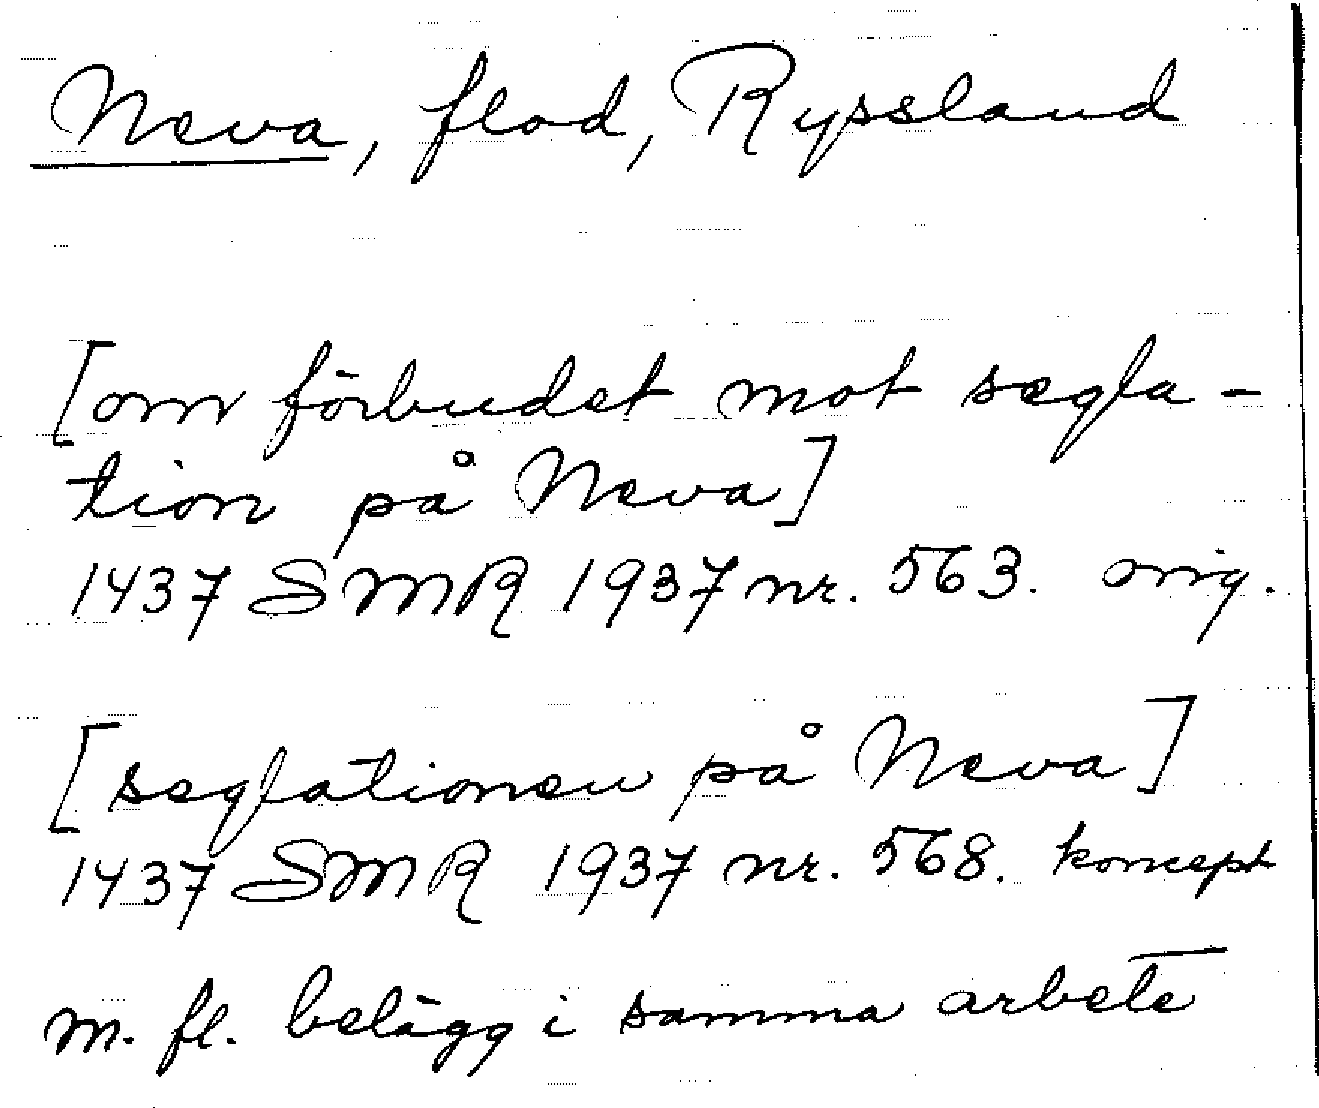 Neva, flod, Ryssland
[om förbudet mot segla-
tion på Neva]
1437 SMR 1937 nr. 563. orig.
[seglationen på Neva]
1437 SMR 1937 nr. 568. koncept
m. fl. belägg i samma arbete